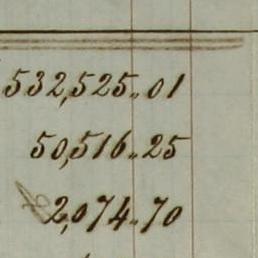 532,525.01
50,516.25
2,074.70